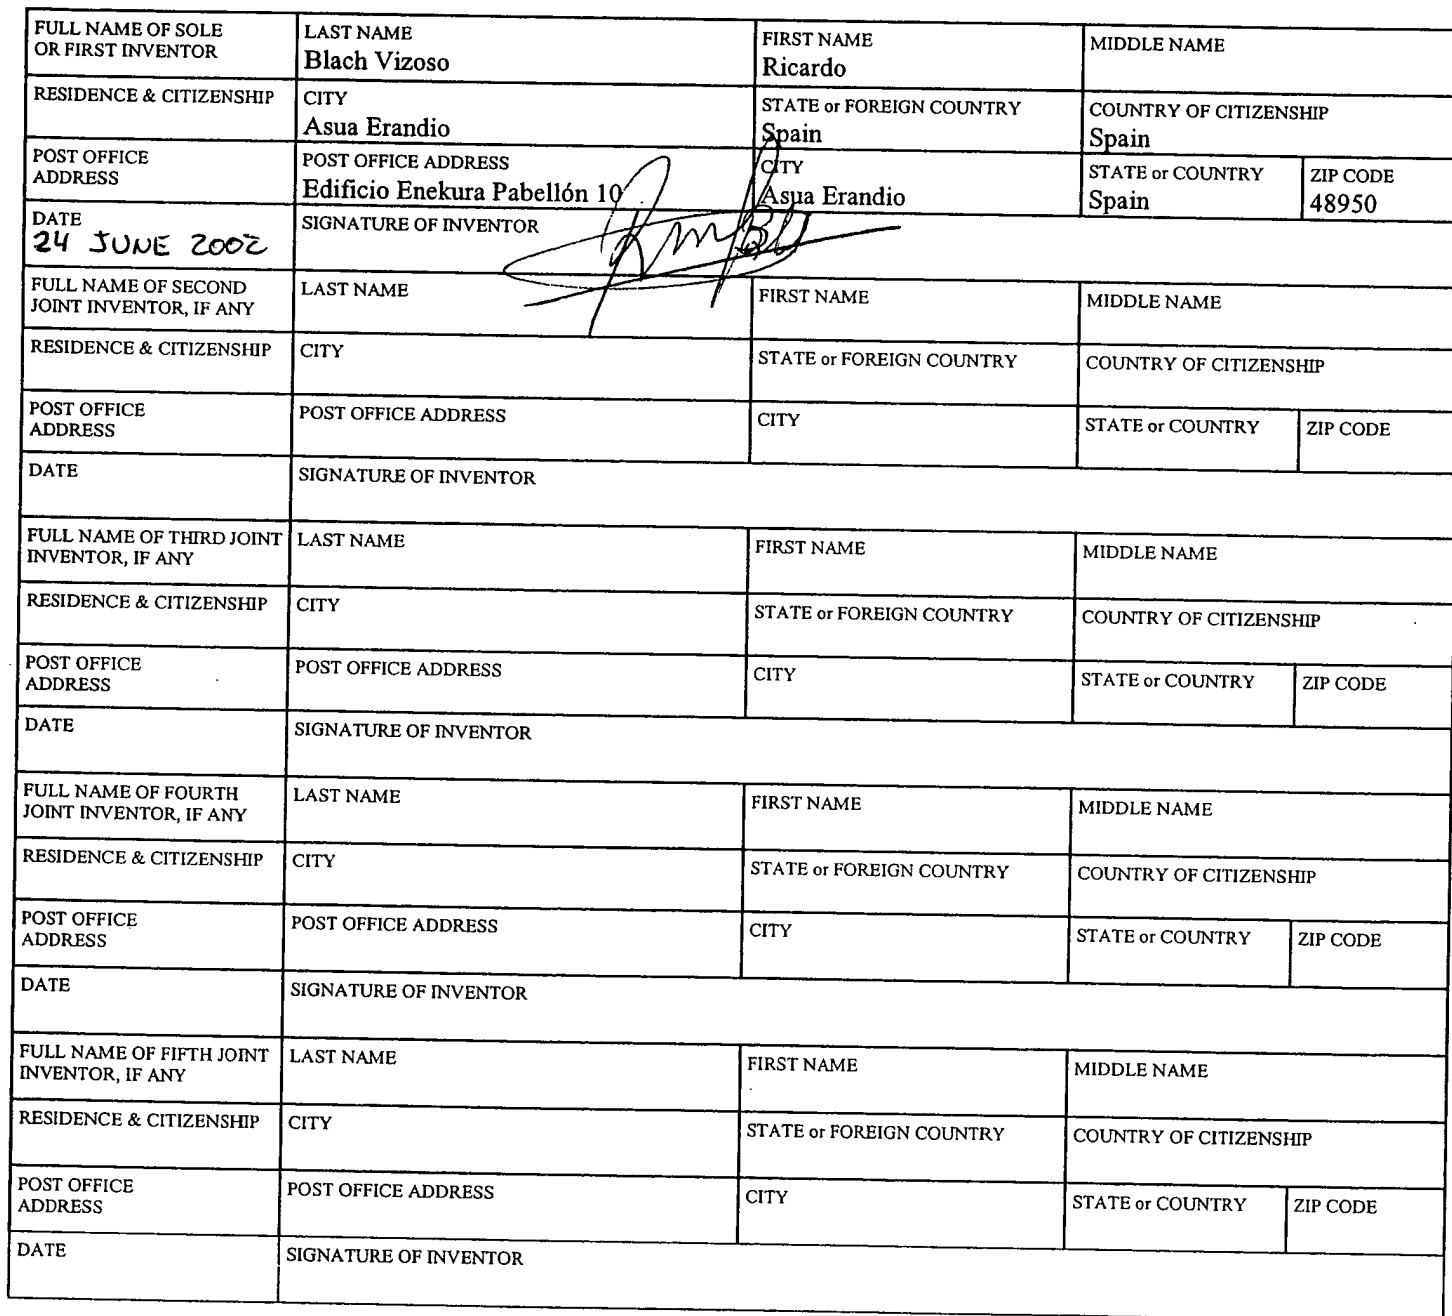 FULL NAME OF SOLE OR FIRST INVENTOR LAST NAME FIRST NAME MIDDLE NAME
Blach Vizoso Ricardo
RESIDENCE & CITIZENSHIP CITY STATE or FOREIGN COUNTRY COUNTRY OF CITIZENSHIP
Asua Erandio Spain Spain
POST OFFICE ADDRESS POST OFFICE ADDRESS CITY STATE or COUNTRY ZIP CODE
Edificio Enekura Pabellón 10 Asua Erandio Spain 48950
DATE SIGNATURE OF INVENTOR
24 JUNE 2002
FULL NAME OF SECOND JOINT INVENTOR, IF ANY LAST NAME FIRST NAME MIDDLE NAME
RESIDENCE & CITIZENSHIP CITY STATE or FOREIGN COUNTRY COUNTRY OF CITIZENSHIP
POST OFFICE ADDRESS POST OFFICE ADDRESS CITY STATE or COUNTRY ZIP CODE
DATE SIGNATURE OF INVENTOR
FULL NAME OF THIRD JOINT INVENTOR, IF ANY LAST NAME FIRST NAME MIDDLE NAME
RESIDENCE & CITIZENSHIP CITY STATE or FOREIGN COUNTRY COUNTRY OF CITIZENSHIP
POST OFFICE ADDRESS POST OFFICE ADDRESS CITY STATE or COUNTRY ZIP CODE
DATE SIGNATURE OF INVENTOR
FULL NAME OF FOURTH JOINT INVENTOR, IF ANY LAST NAME FIRST NAME MIDDLE NAME
RESIDENCE & CITIZENSHIP CITY STATE or FOREIGN COUNTRY COUNTRY OF CITIZENSHIP
POST OFFICE ADDRESS POST OFFICE ADDRESS CITY STATE or COUNTRY ZIP CODE
DATE SIGNATURE OF INVENTOR
FULL NAME OF FIFTH JOINT INVENTOR, IF ANY LAST NAME FIRST NAME MIDDLE NAME
RESIDENCE & CITIZENSHIP CITY STATE or FOREIGN COUNTRY COUNTRY OF CITIZENSHIP
POST OFFICE ADDRESS POST OFFICE ADDRESS CITY STATE or COUNTRY ZIP CODE
DATE SIGNATURE OF INVENTOR